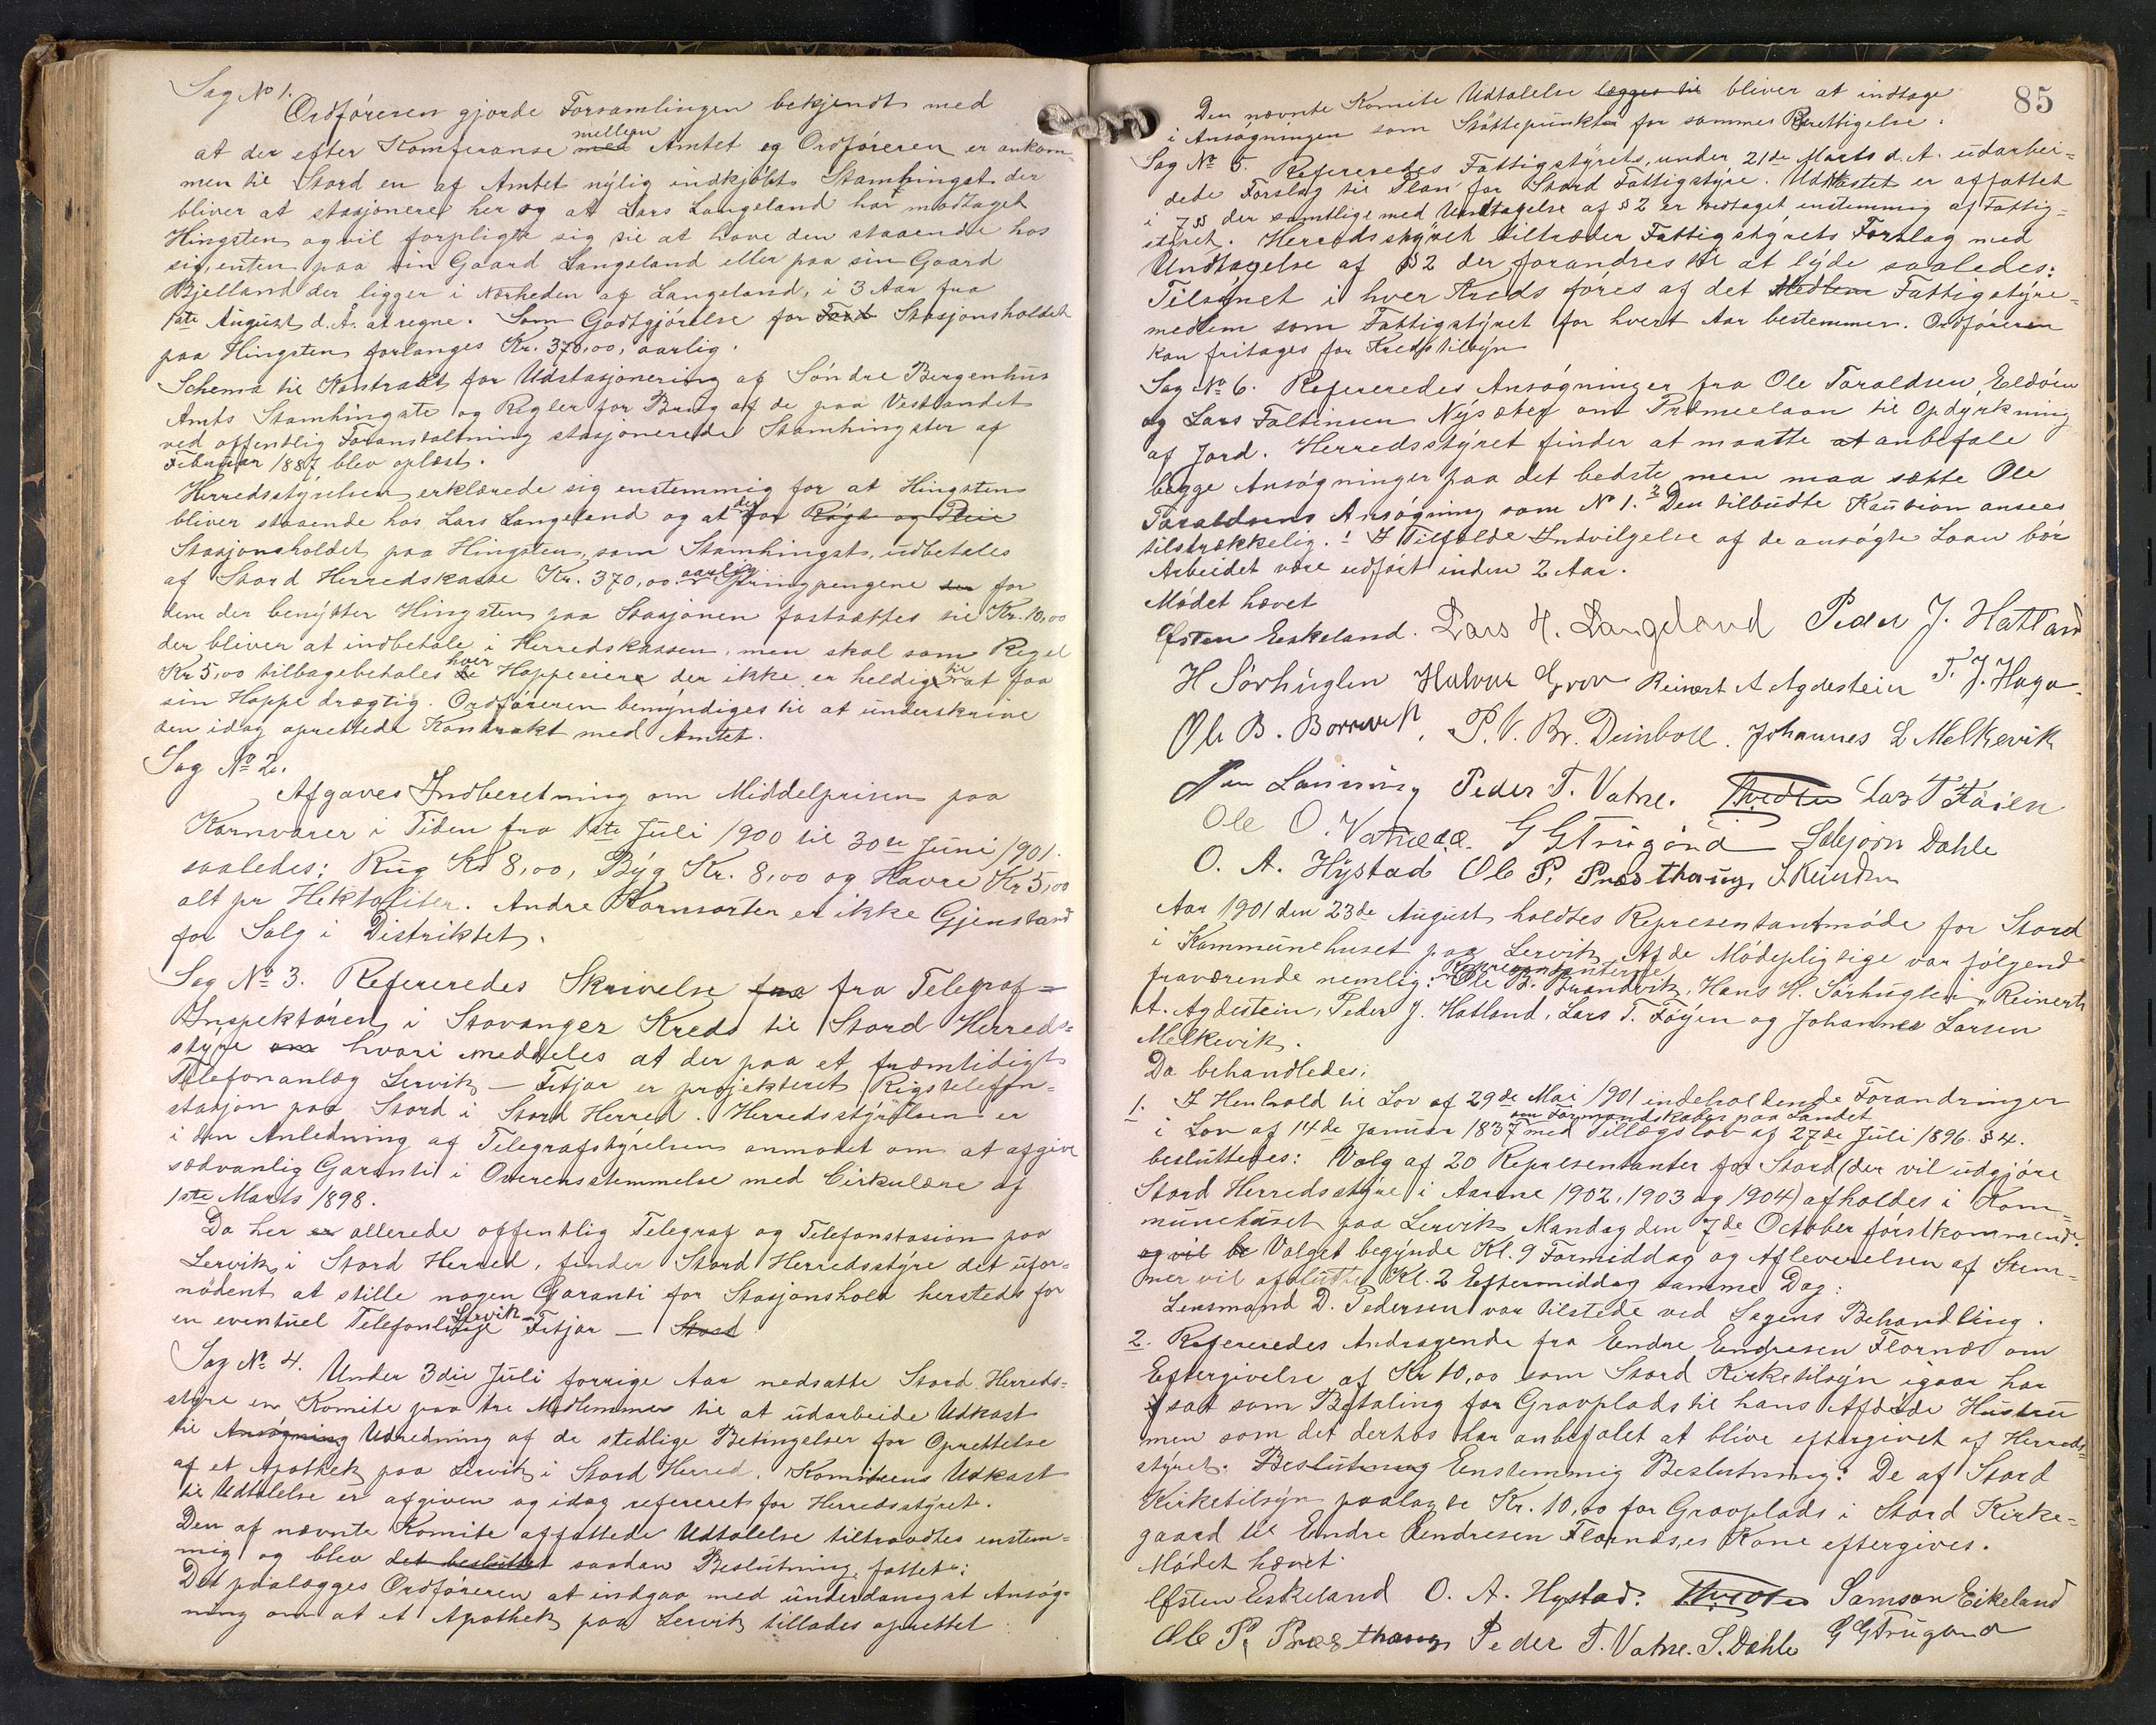 Sag No 1.
Ordføreren gjorde Forsamlingen bekjendt med
at der efter Konferanse med mellem Amtet og Ordføreren er ankom-
men til Stord en af Amtet nylig indkjøbt Stamhingst der
bliver at stasjonere her og at Lars Langeland har modtaget
Hingsten og vil forpligte sig til at have den staaende hos
sig, enten paa sin Gaard Langeland eller paa sin Gaard
Bjelland der ligger i Nærheden af Langeland, i 3 Aar fra
1ste August d.A. at regne. Som Godtgjørelse for Stasjonsholdet
paa Hingsten forlanges Kr. 370,00, aarlig.
Schema til Kontrakt for Udstasjonering af Søndre Bergenhus
Amts Stamhingste og Regler for Brug af de paa Vestlandet
ved offentlig Foranstaltning stasjonerede Stamhingster af
Februar 1887 blev oplæst.
Herredsstyrelsen erklærede sig enstemmig for at Hingsten
bliver staaende hos Lars Langeland og at der for Røgt og Pleie
Stasjonsholdet paa Hingsten, som Stamhingst, udbetales
af Stord Herredskasse Kr. 370,00 aarlig. Springpengene for
dem der benytter Hingsten paa Stasjonen fastsættes til Kr. 10,00
der bliver at indbetale i Herredskassen, men skal som Regel
Kr 5,00 tilbagebetales hver Hoppeeiere der ikke er heldig til at faa
sin Hoppe drægtig. Ordføreren bemyndiges til at underskrive
den idag oprettede Kontrakt med Amtet.
Sag No 2.
Afgaves Indberetning om Middelprisen paa
Kornvarer i Tiden fra 1ste Juli 1900 til 30te Juni 1901.
saaledes: Rug Kr 8,00, Byg Kr. 8,00 og Havre Kr 5,00
alt pr Hektoliter. Andre Kornsorter er ikke Gjenstand
for Salg i Distriktet.
Sag No 3. Refereredes Skrivelse fra fra Telegraf-
Inspektøren i Stavanger Kreds til Stord Herreds-
styre om hvori meddeles at der paa et fremtidigt
Telefonanlæg Lervik - Fitjar er projekteret Rigstelefon-
stasjon paa Stord i Stord Herred. Herredsstyrelsen er
i den Anledning af Telegrafstyrelsen anmodet om at afgive
sædvanlig Garanti i Overensstemmelse med Cirkulære af
1ste Marts 1898.
Da her er allerede offentlig Telegraf og Telefonstasion paa
Lervik i Stord Herred, finder Stord Herredsstyre det ufor-
nødent at stille nogen Garanti for Stasjonshold herstedes for
en eventuel Telefonlinje Lervik - Fitjar - Stord
Sag No 4. Under 3die Juli forrige Aar nedsatte Stord Herreds-
styre en Komite paa tre Medlemmer til at udarbeide Udkast
til Ansøgning Udredning af de stedlige Betingelser for Oprettelse
af et Apothek paa Lervik i Stord Herred. Komiteens Udkast
til Udtalelse er afgiven og idag refereret for Herredsstyret.
Den af nævnte Komite affattede Udtalelse tiltraadtes enstem-
mig og blev det besluttet saadan Beslutning fattet:
Det paalægges Ordføreren at indgaa med underdanigst Ansøg-
ning om at et Apothek paa Lervik tillades oprettet
85
Den nævnte Komite Udtalelse lægges til bliver at indtage
i Ansøgningen som Støttepunkter for sammes Berettigelse.
Sag No 5. Refereredes Fattigstyrets, under 21de Marts d.A. udarbei-
dede Forslag til Plan for Stord Fattigstyre. Udkastet er affattet
i 7 §§ der samtlige med Undtagelse af § 2 er vedtaget enstemmig af Fattig-
styret. Herredsstyret tiltræder Fattigstyrets Forslag med
Undtagelse af § 2 der forandres til at lyde saaledes:
Tilsynet i hver Kreds føres af det Medlem Fattigstyre-
medlem som Fattigstyret for hvert Aar bestemmer. Ordføreren
kan fritages for Kredstilsyn
Sag No 6. Refereredes Ansøgninger fra Ole Taraldsen Eldøen
og Lars Faltinsen Nysæter om Præmielaan til Opdyrkning
af Jord. Herredsstyret finder at maatte at anbefale
begge Ansøgninger paa det bedste men maa sætte Ole
Taraldsens Ansøgning som No 1. Den tilbudte Kaution ansees
tilstrækkelig. I Tilfælde Indvilgelse af de ansøgte Laan bør
Arbeidet være udført inden 2 Aar.
Mødet hævet
Østen Eskeland. Lars H. Langeland Peder J. Hatland
H Sørhuglen Halvar Grov Reinert A Agdestein T. J. Haga.
Ole B. Borrevik. P. V. Br. Deinboll. Johannes L Melkevik
Peder T. Vatne. Lars T Føien
Ole O. Vatnedal. G G Trugønd Sebjørn Dahle
O. A. Hystad Ole P. Præsthaug
Aar 1901 den 23de August holdtes Representantmøde for Stord
i Kommunehuset paa Lervik. Af de Mødepligtige var følgende
fraværende nemlig: Representanterne Ole B. Brandvik, Hans H. Sørhuglen, Reinert
A. Agdestein, Peder J. Hatland, Lars T. Føyen og Johannes Larsen
Melkevik.
Da behandledes:
1. I Henhold til Lov af 29de Mai 1901 indeholdende Forandringer
i Lov af 14de Januar 1837 om Formandskaber paa Landet med Tillægslov af 27de Juli 1896 § 4.
besluttedes: Valg af 20 Representanter for Stord (der vil udgjøre
Stord Herredsstyre i Aarene 1902, 1903 og 1904) afholdes i Kom-
munehuset paa Lervik Mandag den 7de October førstkommende.
og vil be Valget begynde Kl. 9 Formiddag og Afleverelsen af Stem-
mer vil afslutte Kl. 2 Eftermiddag samme Dag.
Lensmand D. Pedersen var tilstede ved Sagens Behandling.
2. Refereredes Andragende fra Endre Endresen Flornæs om
Eftergivelse af Kr 10,00 som Stord Kirketilsyn igaar har
sat som Betaling for Gravplads til hans Afdøde Hustru
men som det derhos har anbefalet at blive eftergivet af Herreds-
styret. Beslutning Enstemmig Beslutning: De af Stord
Kirketilsyn paalagde Kr. 10,00 for Gravplads i Stord Kirke-
gaard til Endre Endresen Flornæs,es Kone eftergives.
Mødet hævet.
Østen Eskeland O. A. Hystad. Samson Eikeland
Ole P. Præsthaug Peder T. Vatne. S. Dahle G G Trugønd